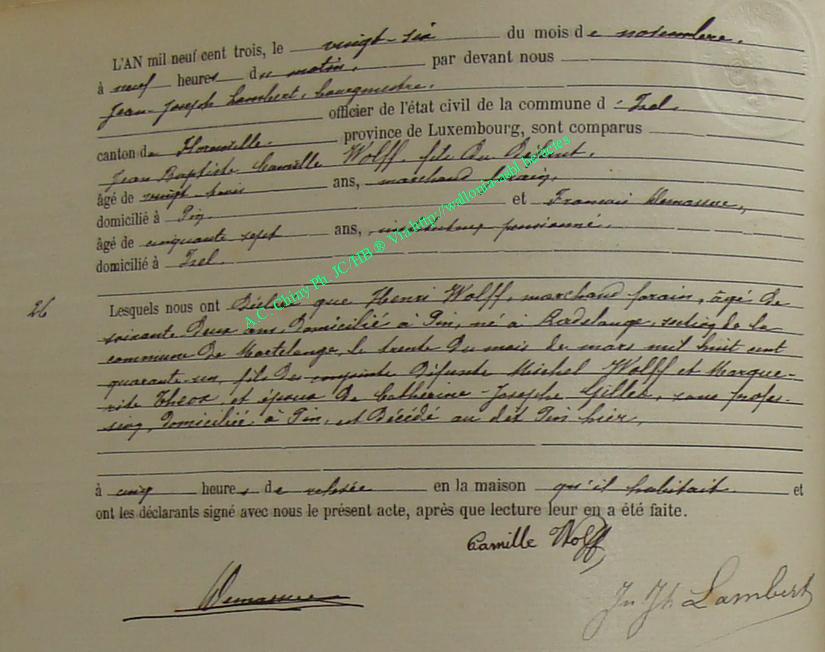 L'AN mil neuf cent trois, le vingt-six du mois de novembre,
à neuf heures du matin, par devant nous
Jean-Joseph Lambert, bourgmestre,
officier de l'état civil de la commune d'Izel
canton de Florenville province de Luxembourg, sont comparus
Jean Baptiste Camille Wolff, fils du défunt,
âgé de vingt trois ans, marchand forain,
domicilié à Pin, et François Demasure,
âgé de cinquante sept ans, instituteur pensionné,
domicilié à Izel
26
Lesquels nous ont déclaré que Henri Wolff, marchand forain, âgé de
soixante deux ans, domicilié à Pin, né à Radelange, section de la
commune de Martelange, le trente du mois de mars mil huit cent
quarante-un, fils des conjoints défunts Michel Wolff et Margue-
rite Theos et époux de Catherine-Josephe Gillet, sans profes-
sion, domiciliée à Pin, est décédé au dit Pin hier,
à cinq heures de relevée en la maison qu'il habitait et
ont les déclarants signé avec nous le présent acte, après que lecture leur en a été faite.
Camille Wolff
Demasure
Jn Jh Lambert
A.C. Chiny Ph. JC/HB ® Via http://wallonia-asbl.be/actes